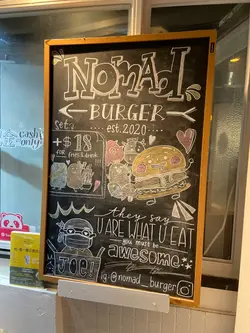 cash
only!
NOMAD
BURGER
est.2020
Set:
+$18
for fries & drink
they say
U ARE WHAT U EAT
you must be
awesome
JOE!
ig@nomad_burger